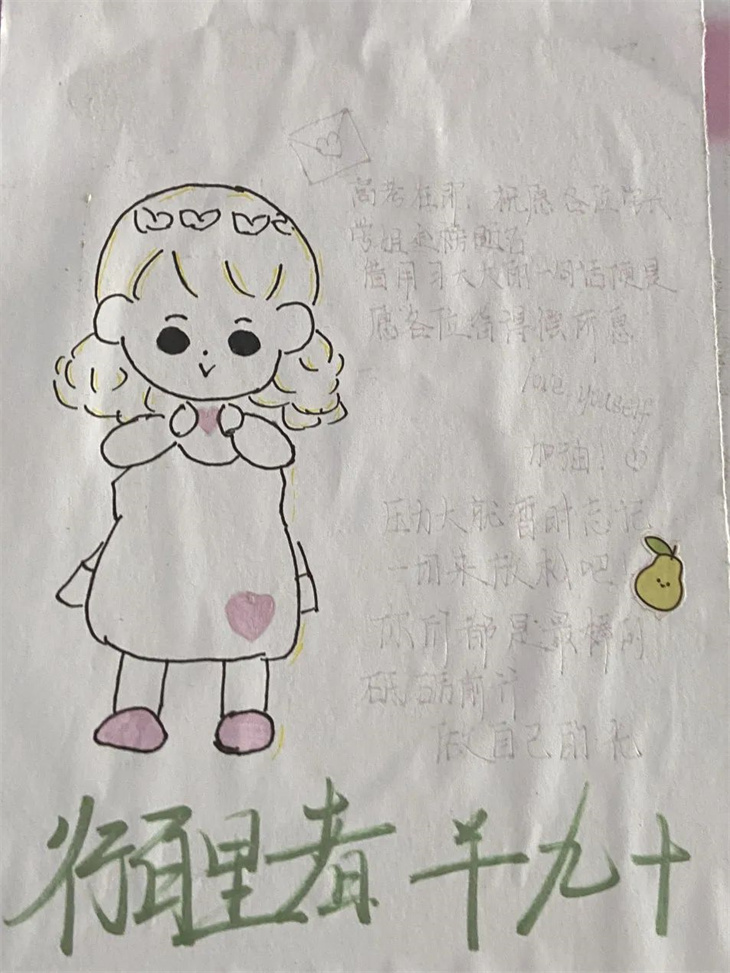 高考在即，祝愿各位学长
学姐金榜题名
借用习大大的一句话便是
愿各位都得偿所愿
love yourself
加油！
压力大就暂时忘记
一切来放松吧！
你们都是最棒的
砥砺前行
做自己的光
行百里者半九十